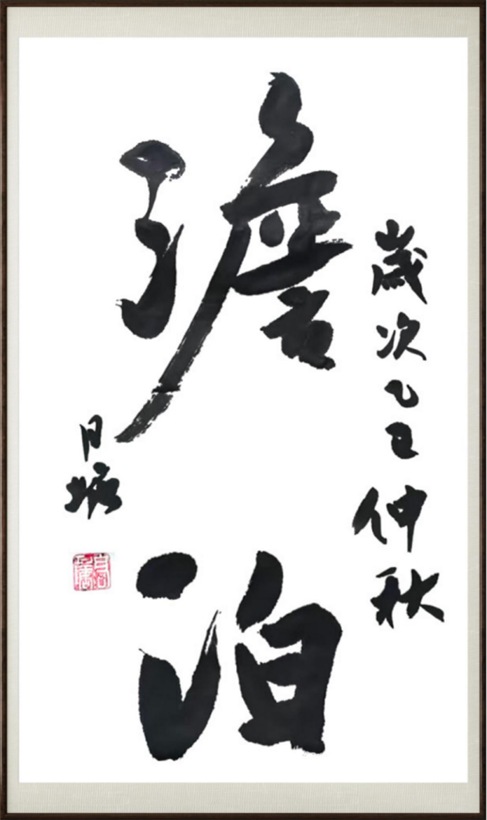 澹泊
歲次乙巳仲秋
月塘